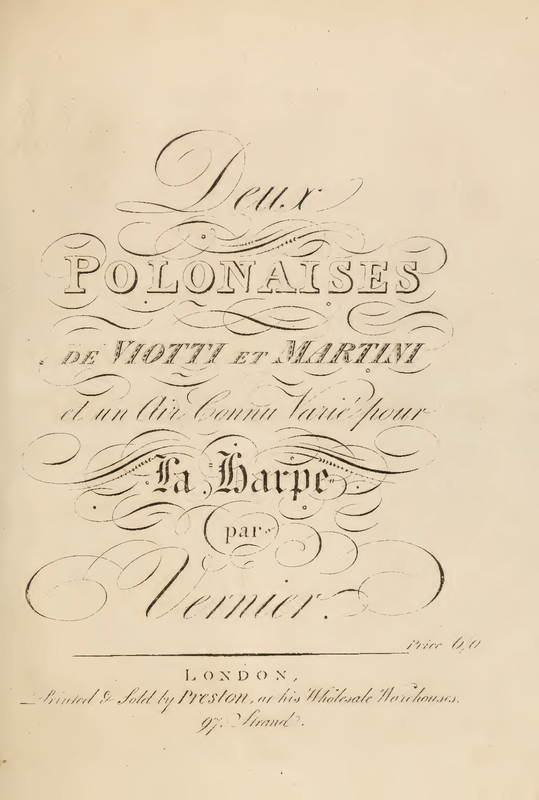 Deux
POLONAISES
DE VIOTTI ET MARTINI
et un Air Connu Varié pour
La Harpe
par
Vernier.
Price 6/0
LONDON,
Printed & Sold by Preston, at his Wholesale Warehouses.
97. Strand.